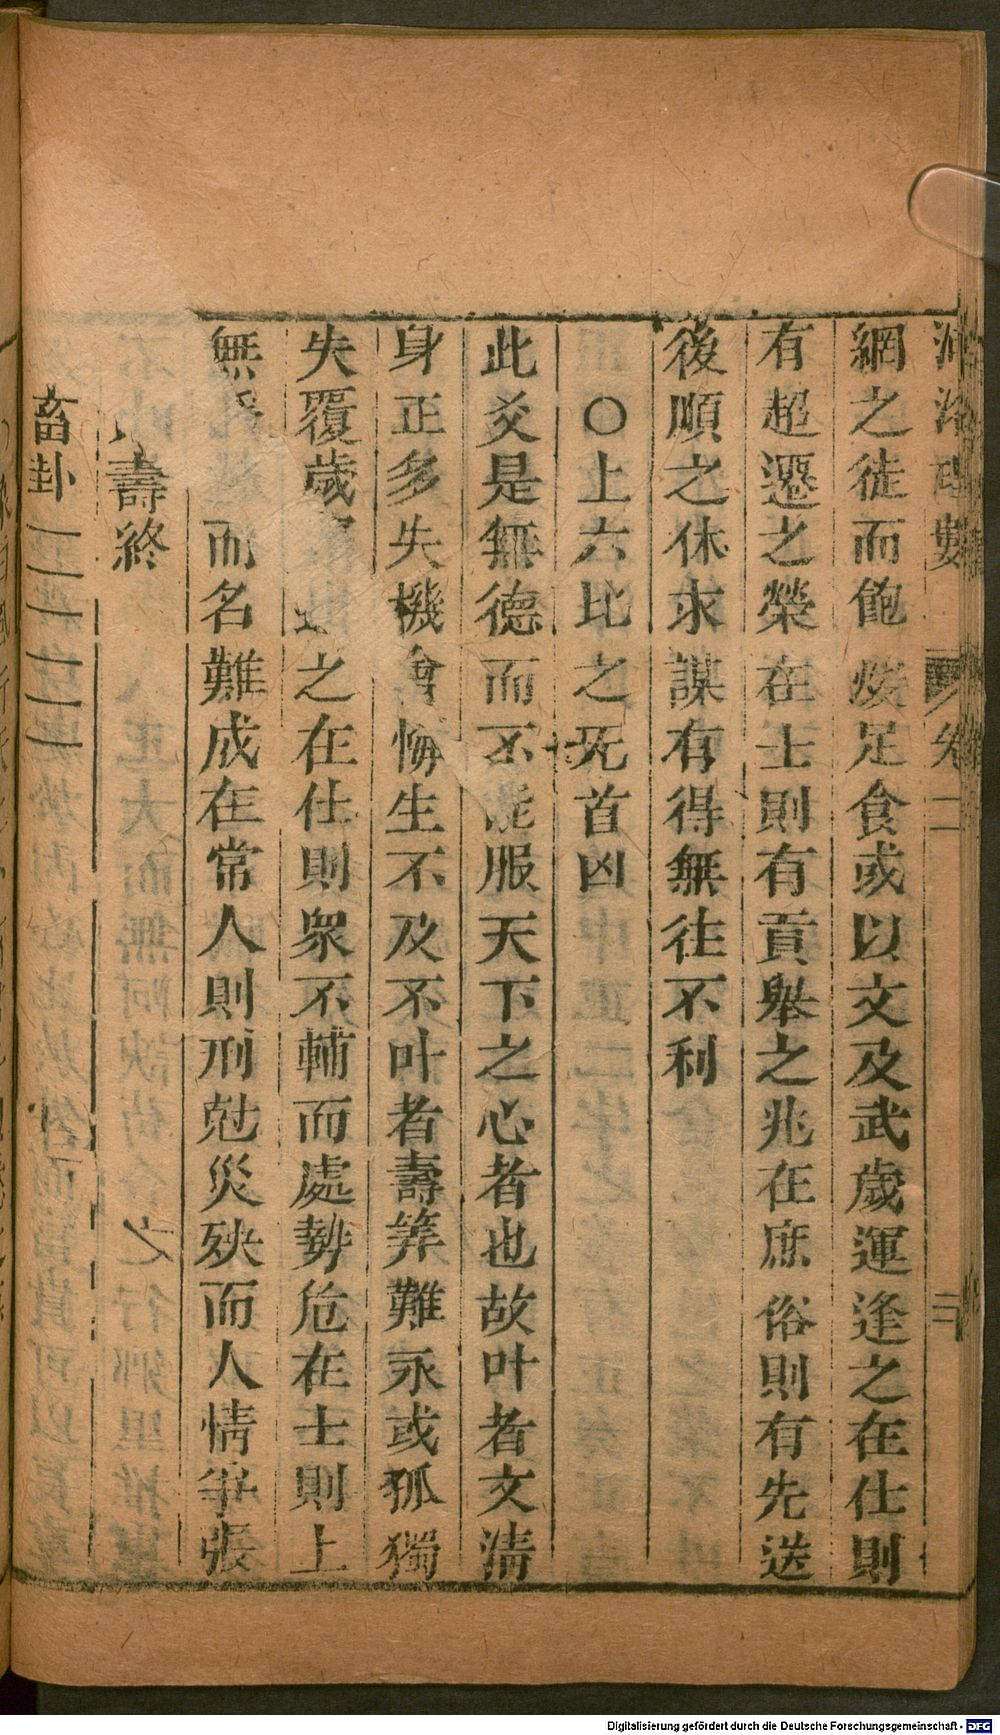 數 卷二
網之徒而飽煖足食或以文及武歲運逢之在仕則
有超遷之榮在士則有貢舉之兆在庶俗則有先迷
後順之休求謀有得無往不利
○上六比之旡首凶
此爻是無德而不能服天下之心者也故叶者文清
身正多失機會悔生不及不叶者壽筭難永或孤獨
失覆歲之在仕則眾不輔而處勢危在士則上
無而名難成在常人則刑尅災殃而人情爭張
壽終
畜卦
Digitalisierung gefördert durch die Deutsche Forschungsgemeinschaft - DFG